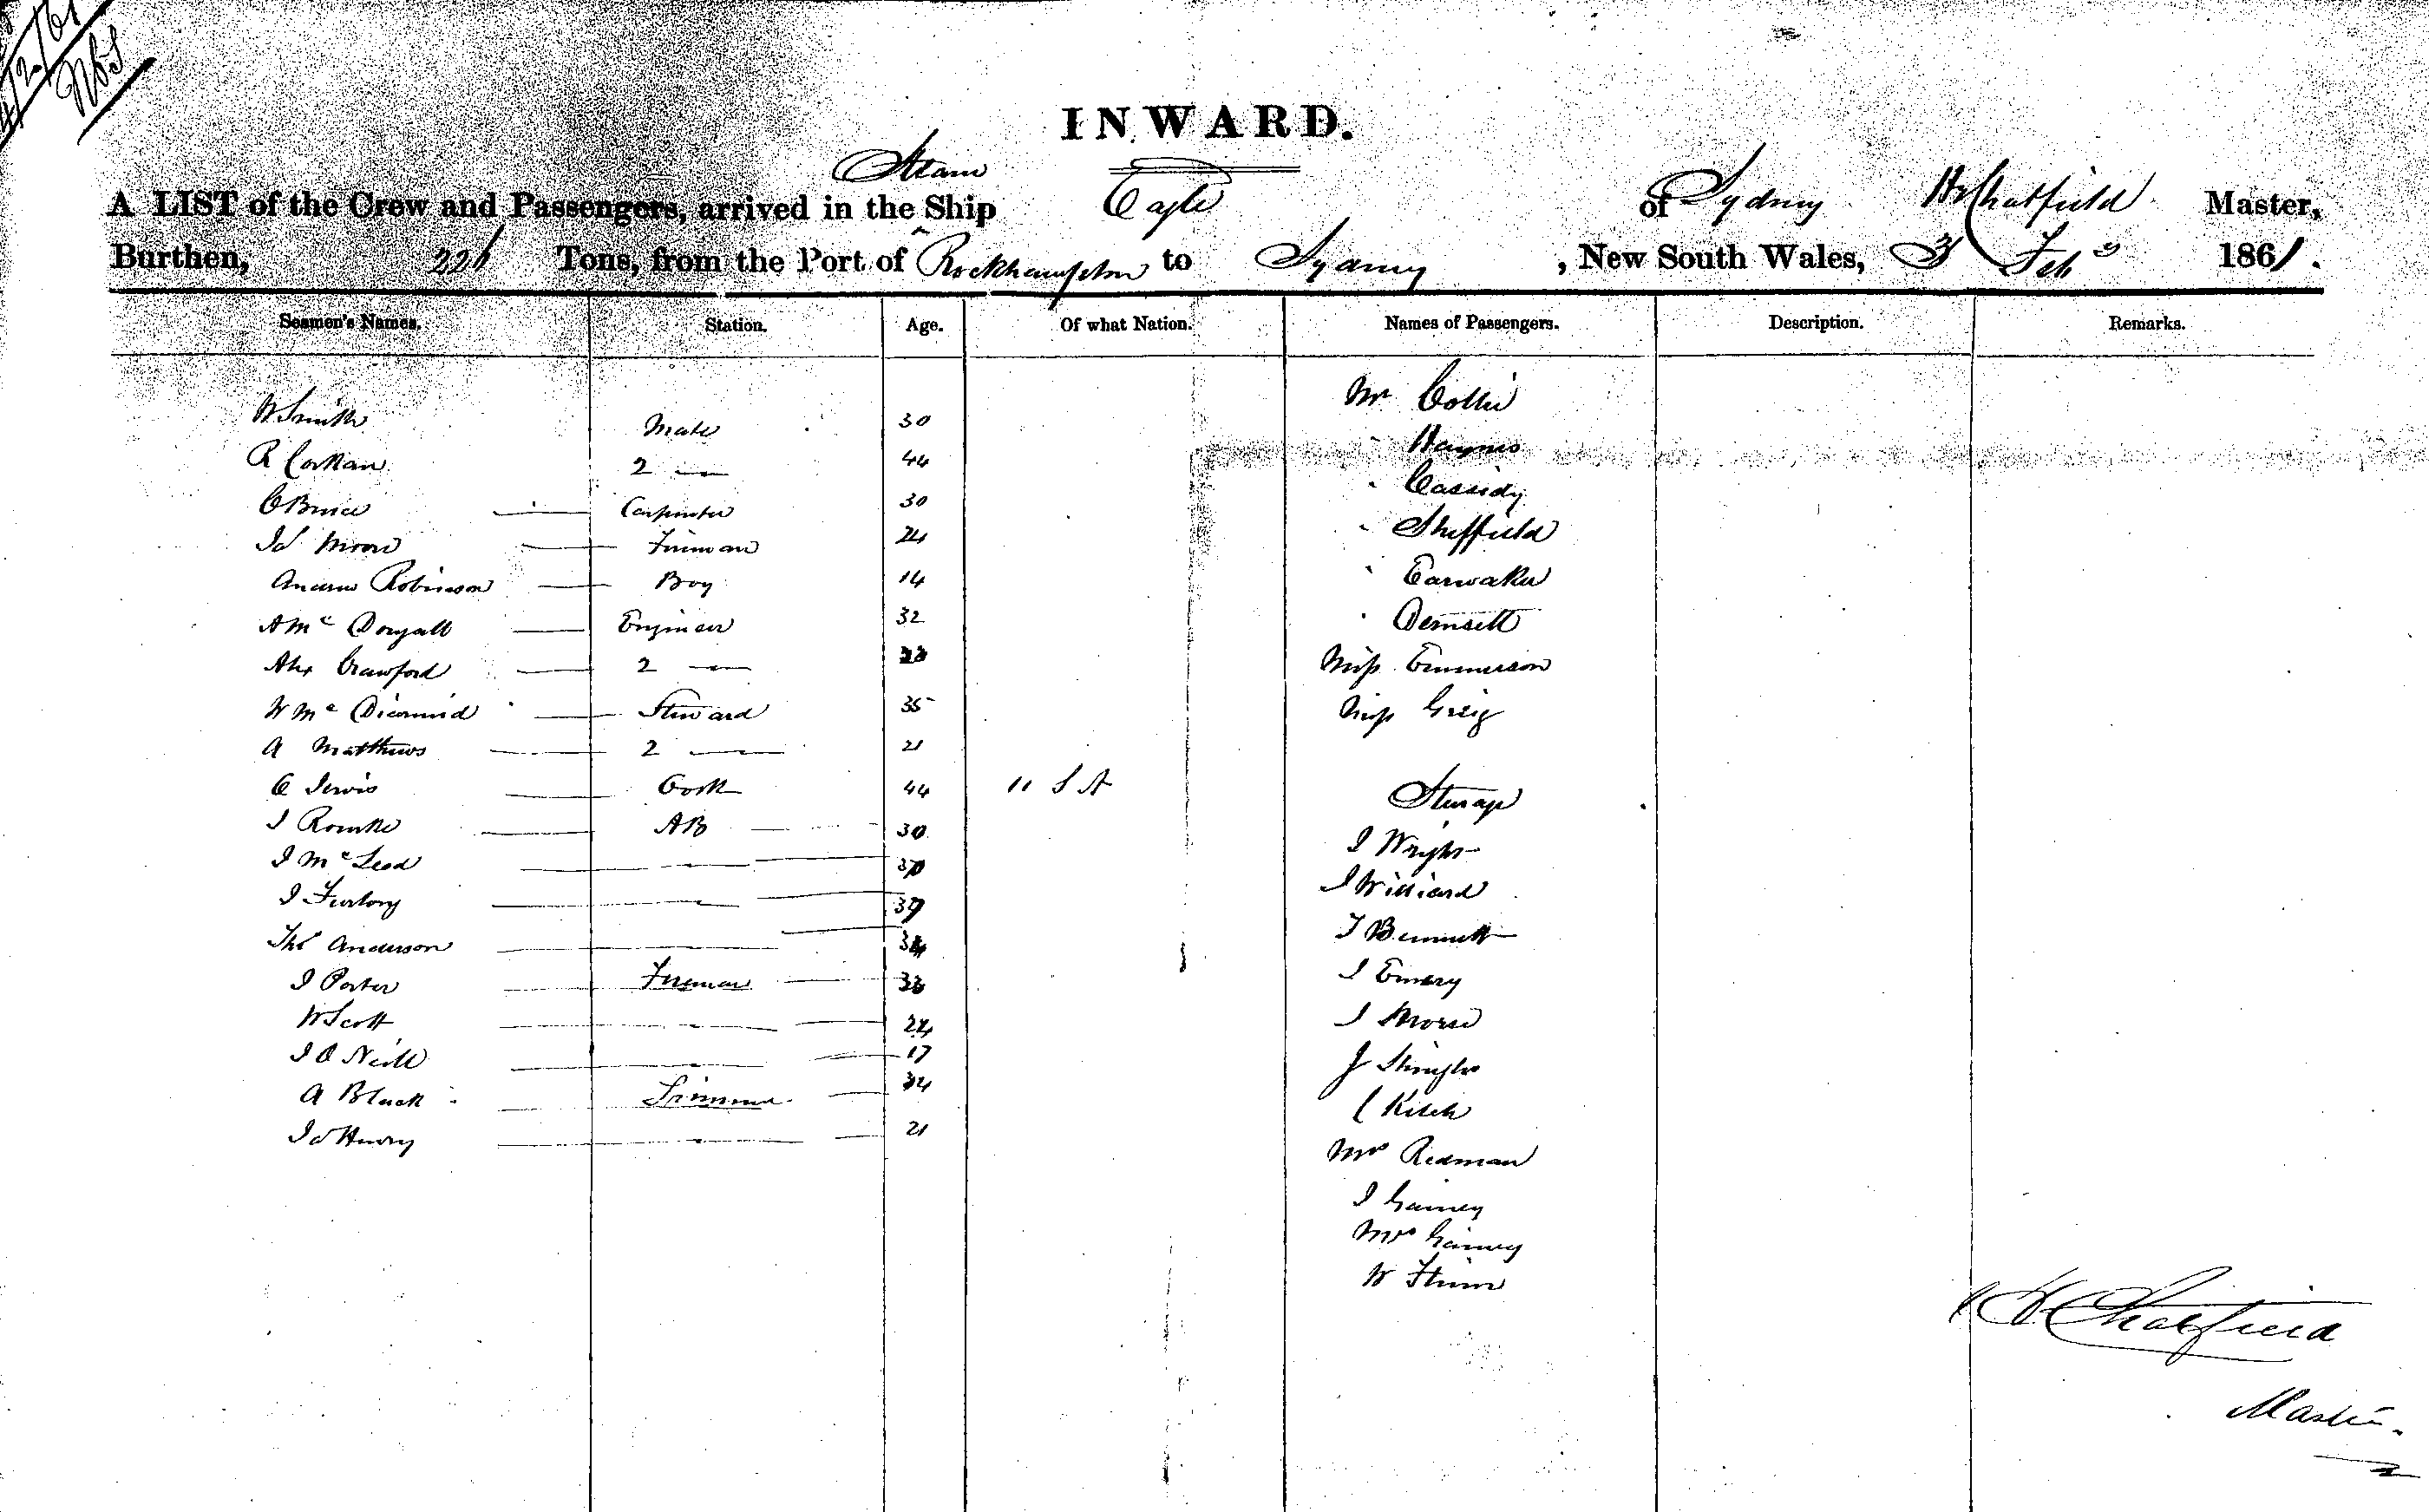 4/2/61
INWARD.
Steam
A LIST of the Crew and Passengers, arrived in the Ship Eagle of Sydney H Chatfield Master,
Burthen, 226 Tons, from the Port of Rockhampton to Sydney, New South Wales, 3 Feby 1861.
Seamen's Names. Station. Age. Of what Nation. Names of Passengers. Description. Remarks.
W Smith Mate 30 Mr Collie
R Corkan 2 — 44 " Haynes
C Bruce — Carpenter 30 " Cassidy
Js Moore — Fireman 24 " Sheffield
Andrew Robinson — Boy 14 " Earwaker
A Mc Dougall — Engineer 32 "
Alex Crawford — 2 — 23 Miss Emmerson
W Mc Diarmid — Steward 35 Miss Greig
A Matthews — 2 — 21
C Jervis — Cook 44 " S A Sterage
J Rourke — AB — 30 J Wright
J Mc Leod — — — 30 J Williard
J Furlong — — — 39 T Bennett
Thos Anderson — — — 34 J Emery
J Porter — Fireman — 33 J Morse
W Scott — — — 24 J
J O Neill — — — 17 C Kitch
A Black — Trimmer — 34 Mrs Redman
Js Henry — — — 21 J Gainey
Mrs Gainey
W Flinn
H Chatfield
Master